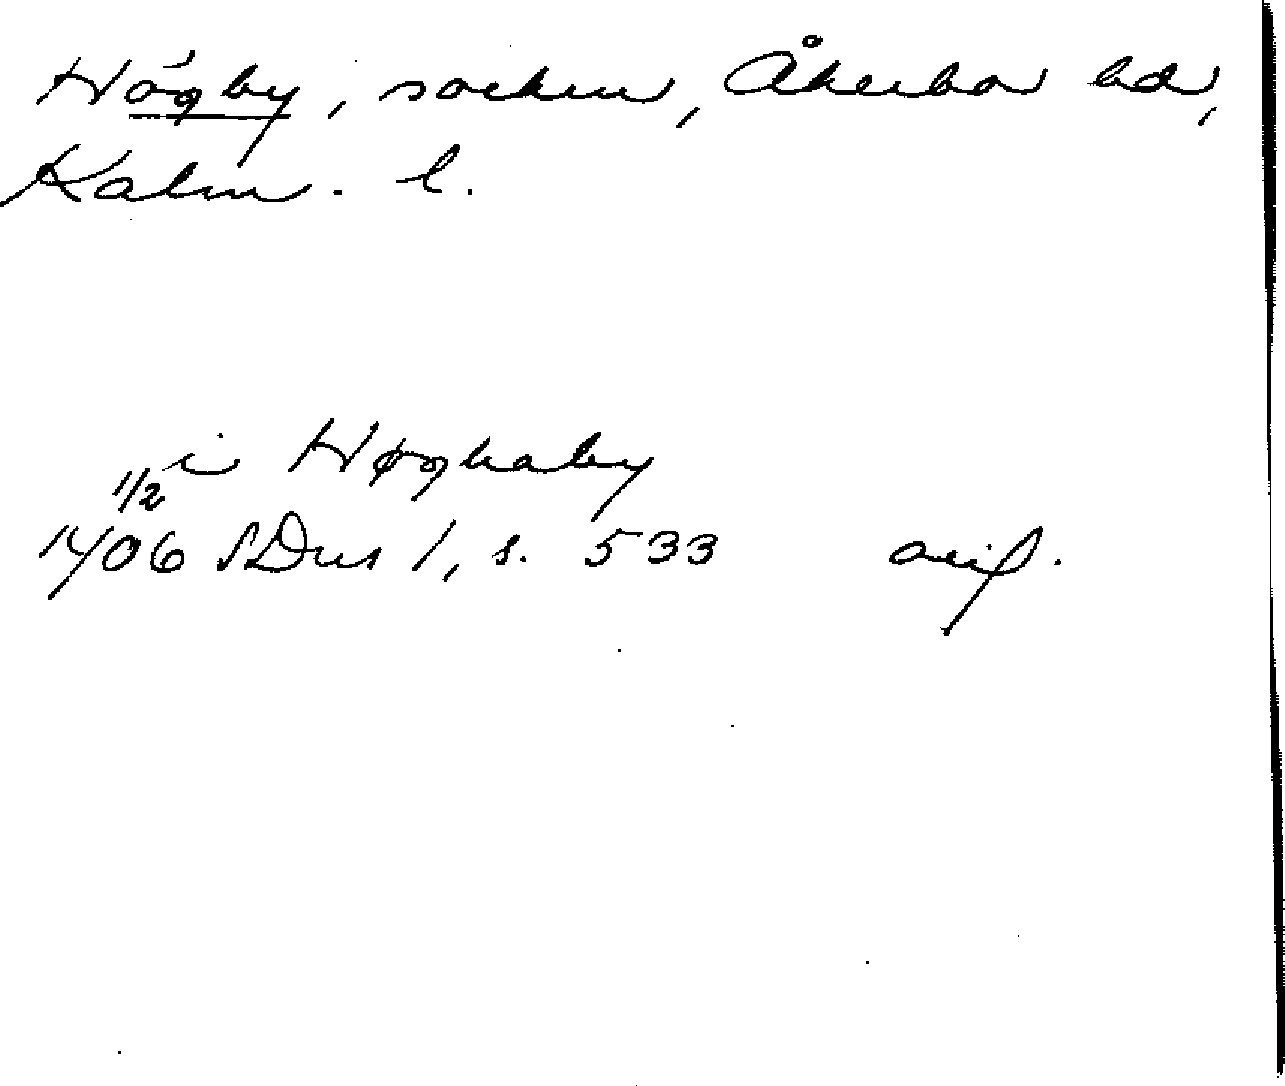 Högby, socken, Åkerbo hd,
Kalm. l.
i Høghaby
1/2
1406 SDns 1, s. 533 avsk.